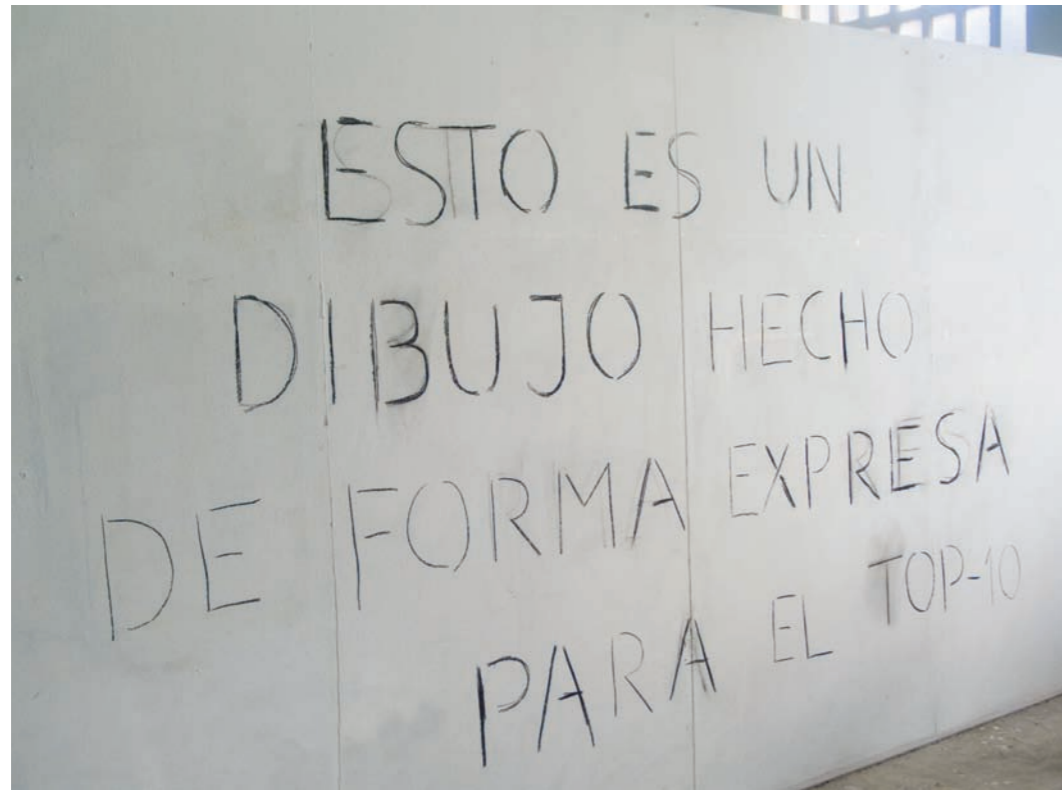 ESTO ES UN
DIBUJO HECHO
DE FORMA EXPRESA
PARA EL TOP-10